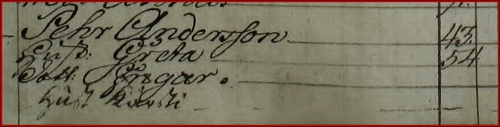 Pehr Andersson 43
Hust. Greta 54
Dott. Ingar.
Hust Kärsti